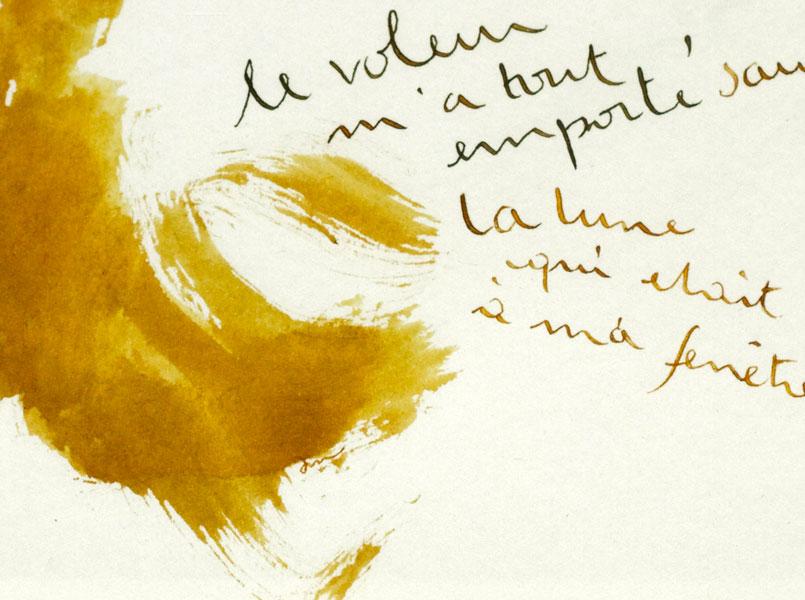 le voleur
m'a tout
emporté sau
la lune
qui etait
à ma fenêtre